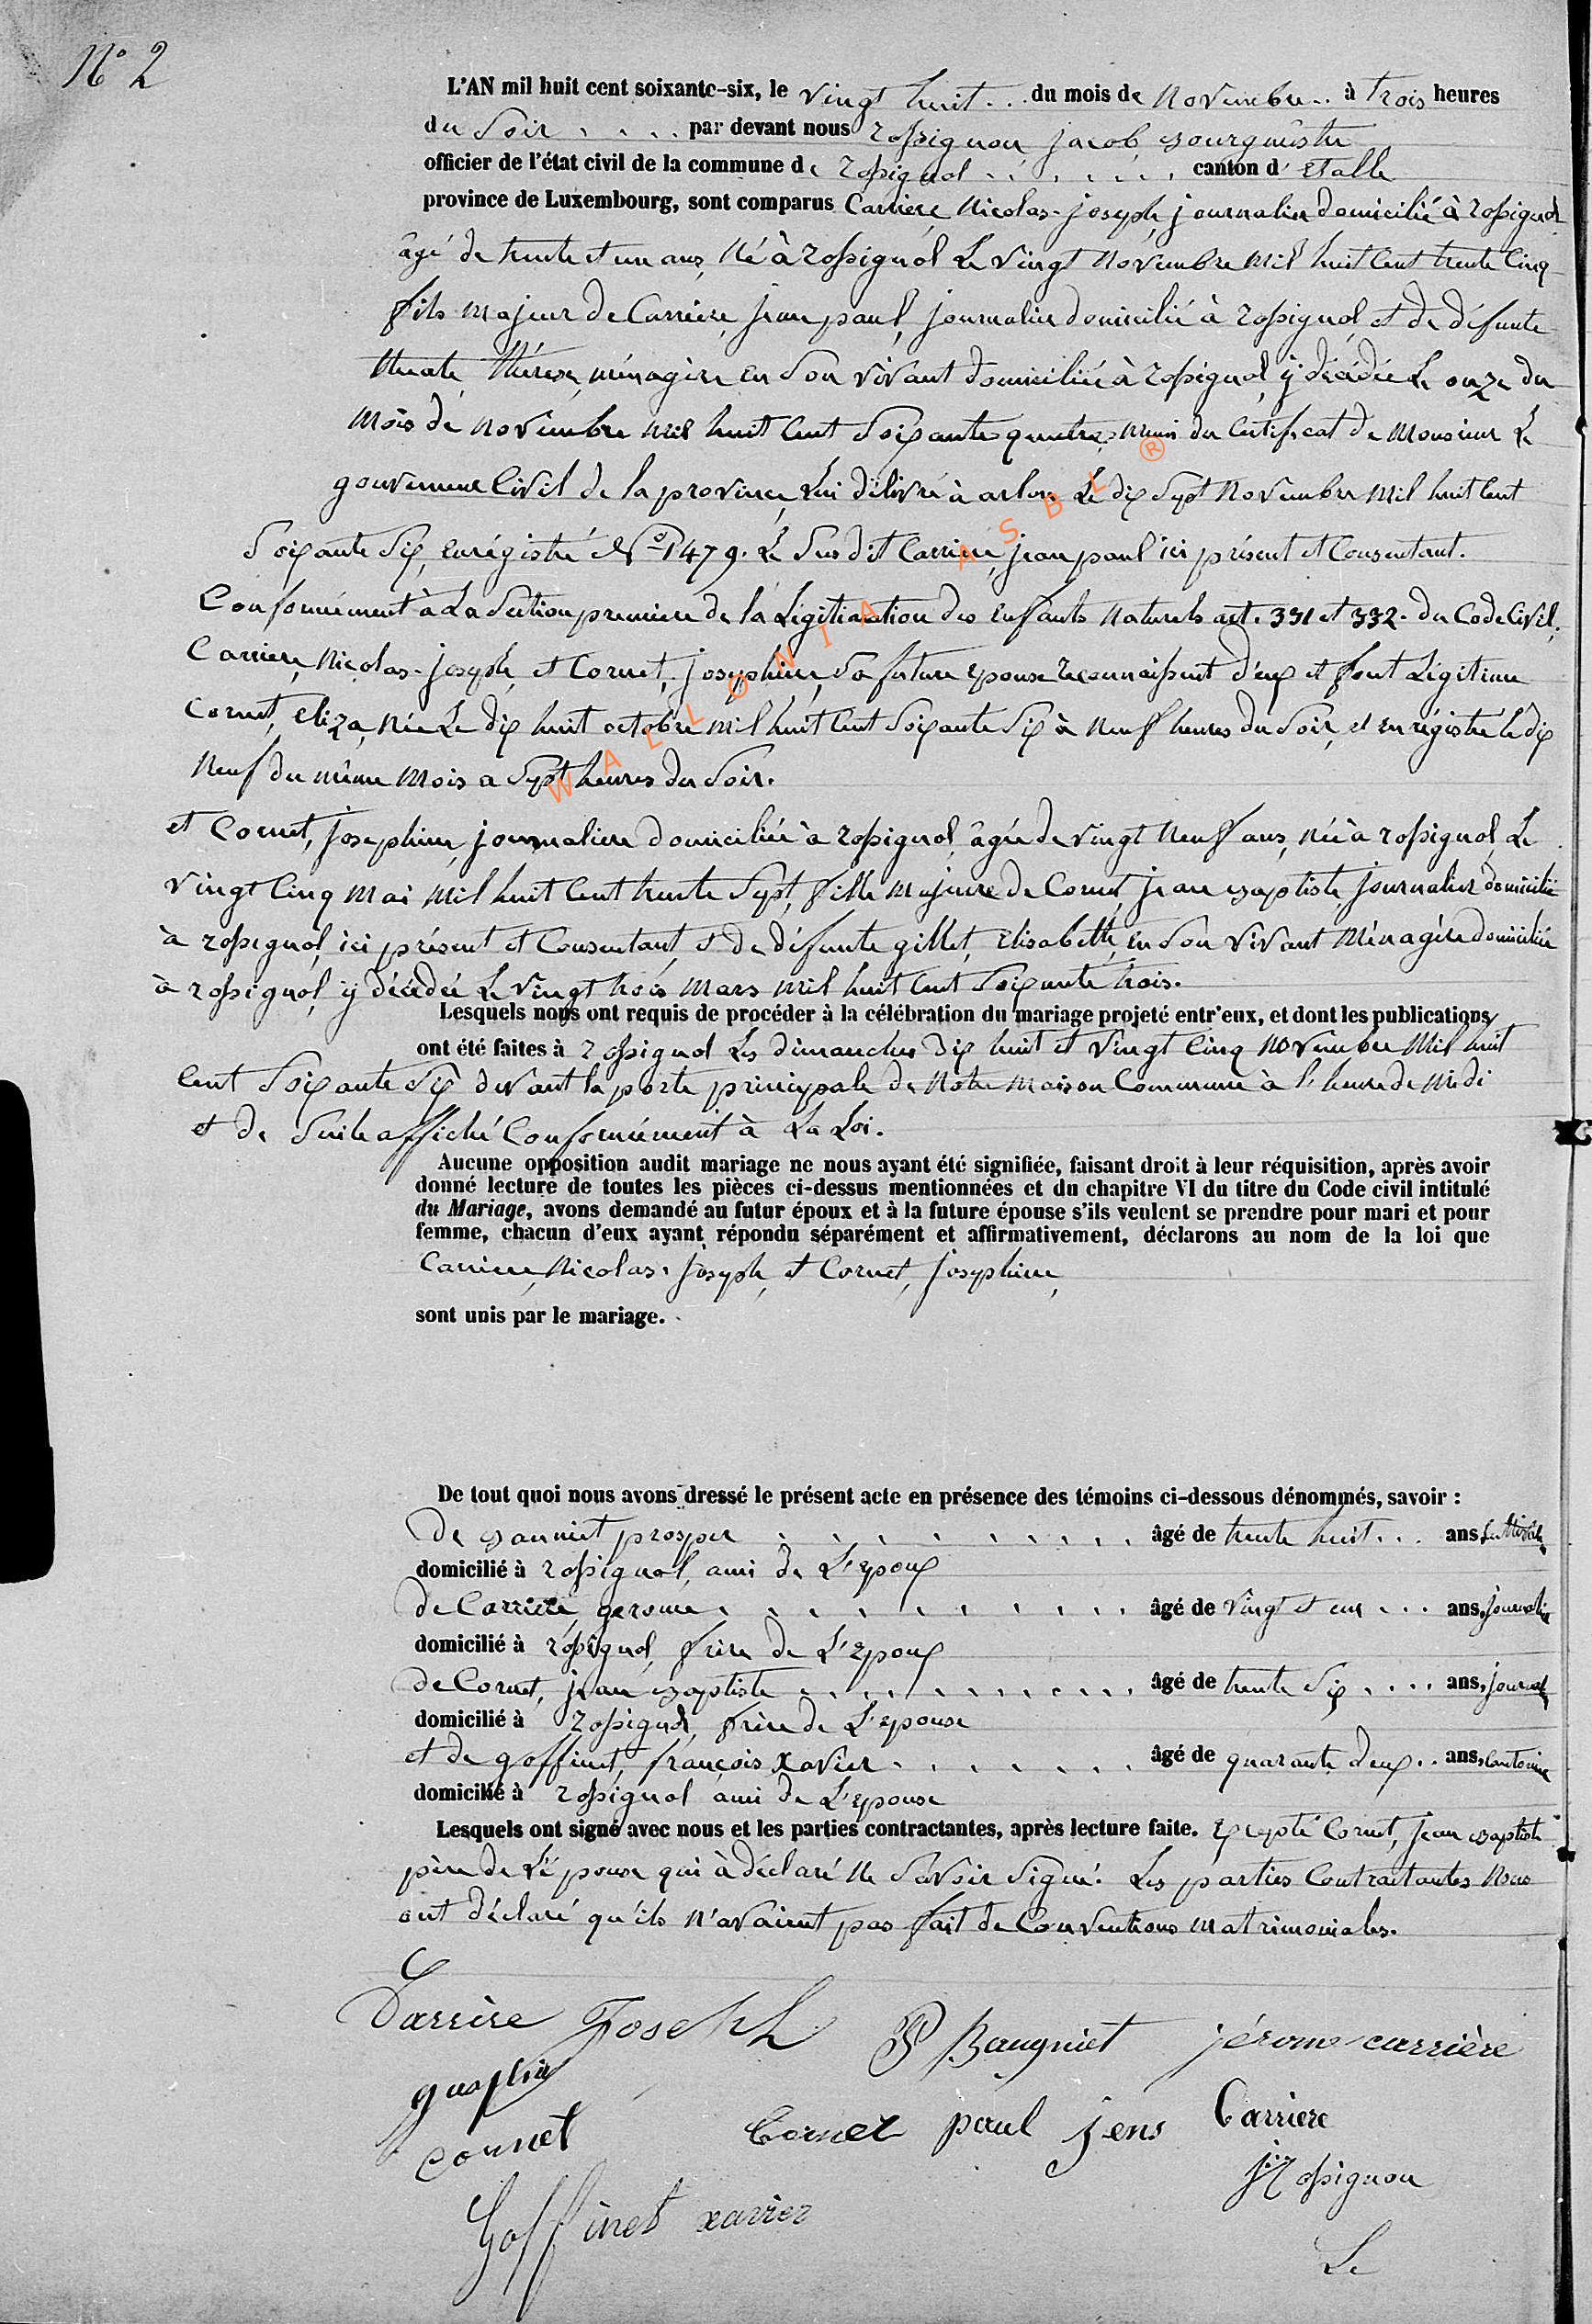 N° 2
L'AN mil huit cent soixante-six, le vingt huit... du mois de novembre.. à trois heures
du soir . . . . par devant nous rossignon jacob bourgmestre
officier de l'état civil de la commune de rossignol . . . . . . canton d'etalle
province de Luxembourg, sont comparus Carrière Nicolas-joseph, journalier domicilié à rossignol
âgé de trente et un ans, Né à rossignol Le vingt novembre mil huit cent trente cinq
fils majeur de Carriere, jean paul, journalier domicilié à rossignol, et de défunte
Thérèse, ménagère en son vivant domiciliée à rossignol, y décédée Le onze du
mois de novembre mil huit cent soixante quatre, muni du certificat de Monsieur Le
gouverneur Civil de la province, Lui délivré à arlon Le dix sept Novembre mil huit cent
soixante six, enrégistré N° 1479. Le sus dit Carriere, jean paul ici présent et Consentant.
Conformément à La Section premiere de la Légitimation des enfants naturels art. 331 et 332. du Code Civil,
Carriere, Nicolas-joseph, et Cornet, josephine, sa future epouse reconnaissent d'eux et font Légitime
Cornet, eliza, née Le dix huit octobre mil huit cent soixante six à neuf heures du soir, et enrégistré le dix
neuf du même mois a sept heures du soir.
et Cornet, josephine, journaliere domiciliée à rossignol, âgée de vingt neuf ans, née à rossignol, Le
vingt cinq mai mil huit cent trente sept, fille majeure de Cornet, jean baptiste, journalier domicilié
à rossignol, ici présent et Consentant, et de défunte gillet, elisabeth, en son vivant Ménagère domiciliée
à rossignol, y décédée Le vingt trois mars mil huit cent soixante trois.
Lesquels nous ont requis de procéder à la célébration du mariage projeté entr'eux, et dont les publications
ont été faites à rossignol Les dimanches dix huit et vingt cinq novembre mil huit
cent soixante six devant la porte principale de notre maison Commune à l'heure de midi
et de suite affiché Conformément à La Loi.
Aucune opposition audit mariage ne nous ayant été signifiée, faisant droit à leur réquisition, après avoir
donné lecture de toutes les pièces ci-dessus mentionnées et du chapitre VI du titre du Code civil intitulé
du Mariage, avons demandé au futur époux et à la future épouse s'ils veulent se prendre pour mari et pour
femme, chacun d'eux ayant répondu séparément et affirmativement, déclarons au nom de la loi que
Carriere, Nicolas-Joseph, et Cornet, josephine,
sont unis par le mariage.
De tout quoi nous avons dressé le présent acte en présence des témoins ci-dessous dénommés, savoir :
De baugniet prosper . . . . . . . . âgé de trente huit... ans,
domicilié à rossignol, ami de L'époux
de Carriere, gerome . . . . . . . . âgé de vingt et un ... ans, journalier
domicilié à rossignol, frère de L'epoux
de Cornet, jean baptiste . . . . . . . . âgé de trente six .... ans, journal
domicilié à rossignol, frère de L'epouse
et de goffinet, françois xavier . . . . . . âgé de quarante deux.. ans, cantonnier
domicilié à rossignol ami de L'epouse
Lesquels ont signé avec nous et les parties contractantes, après lecture faite. Excepté Cornet, jean baptiste
père de L'épouse qui à déclaré ne savoir signé. Les parties Contractantes nous
ont déclaré qu'ils n'avaient pas fait de Conventions matrimoniales.
Carrière Joseph P Baugniet jérome carrière
cornet Cornet paul jens Carriere
J Rossignon
Goffinet xavier
Le
WALLONIA ASBL ®